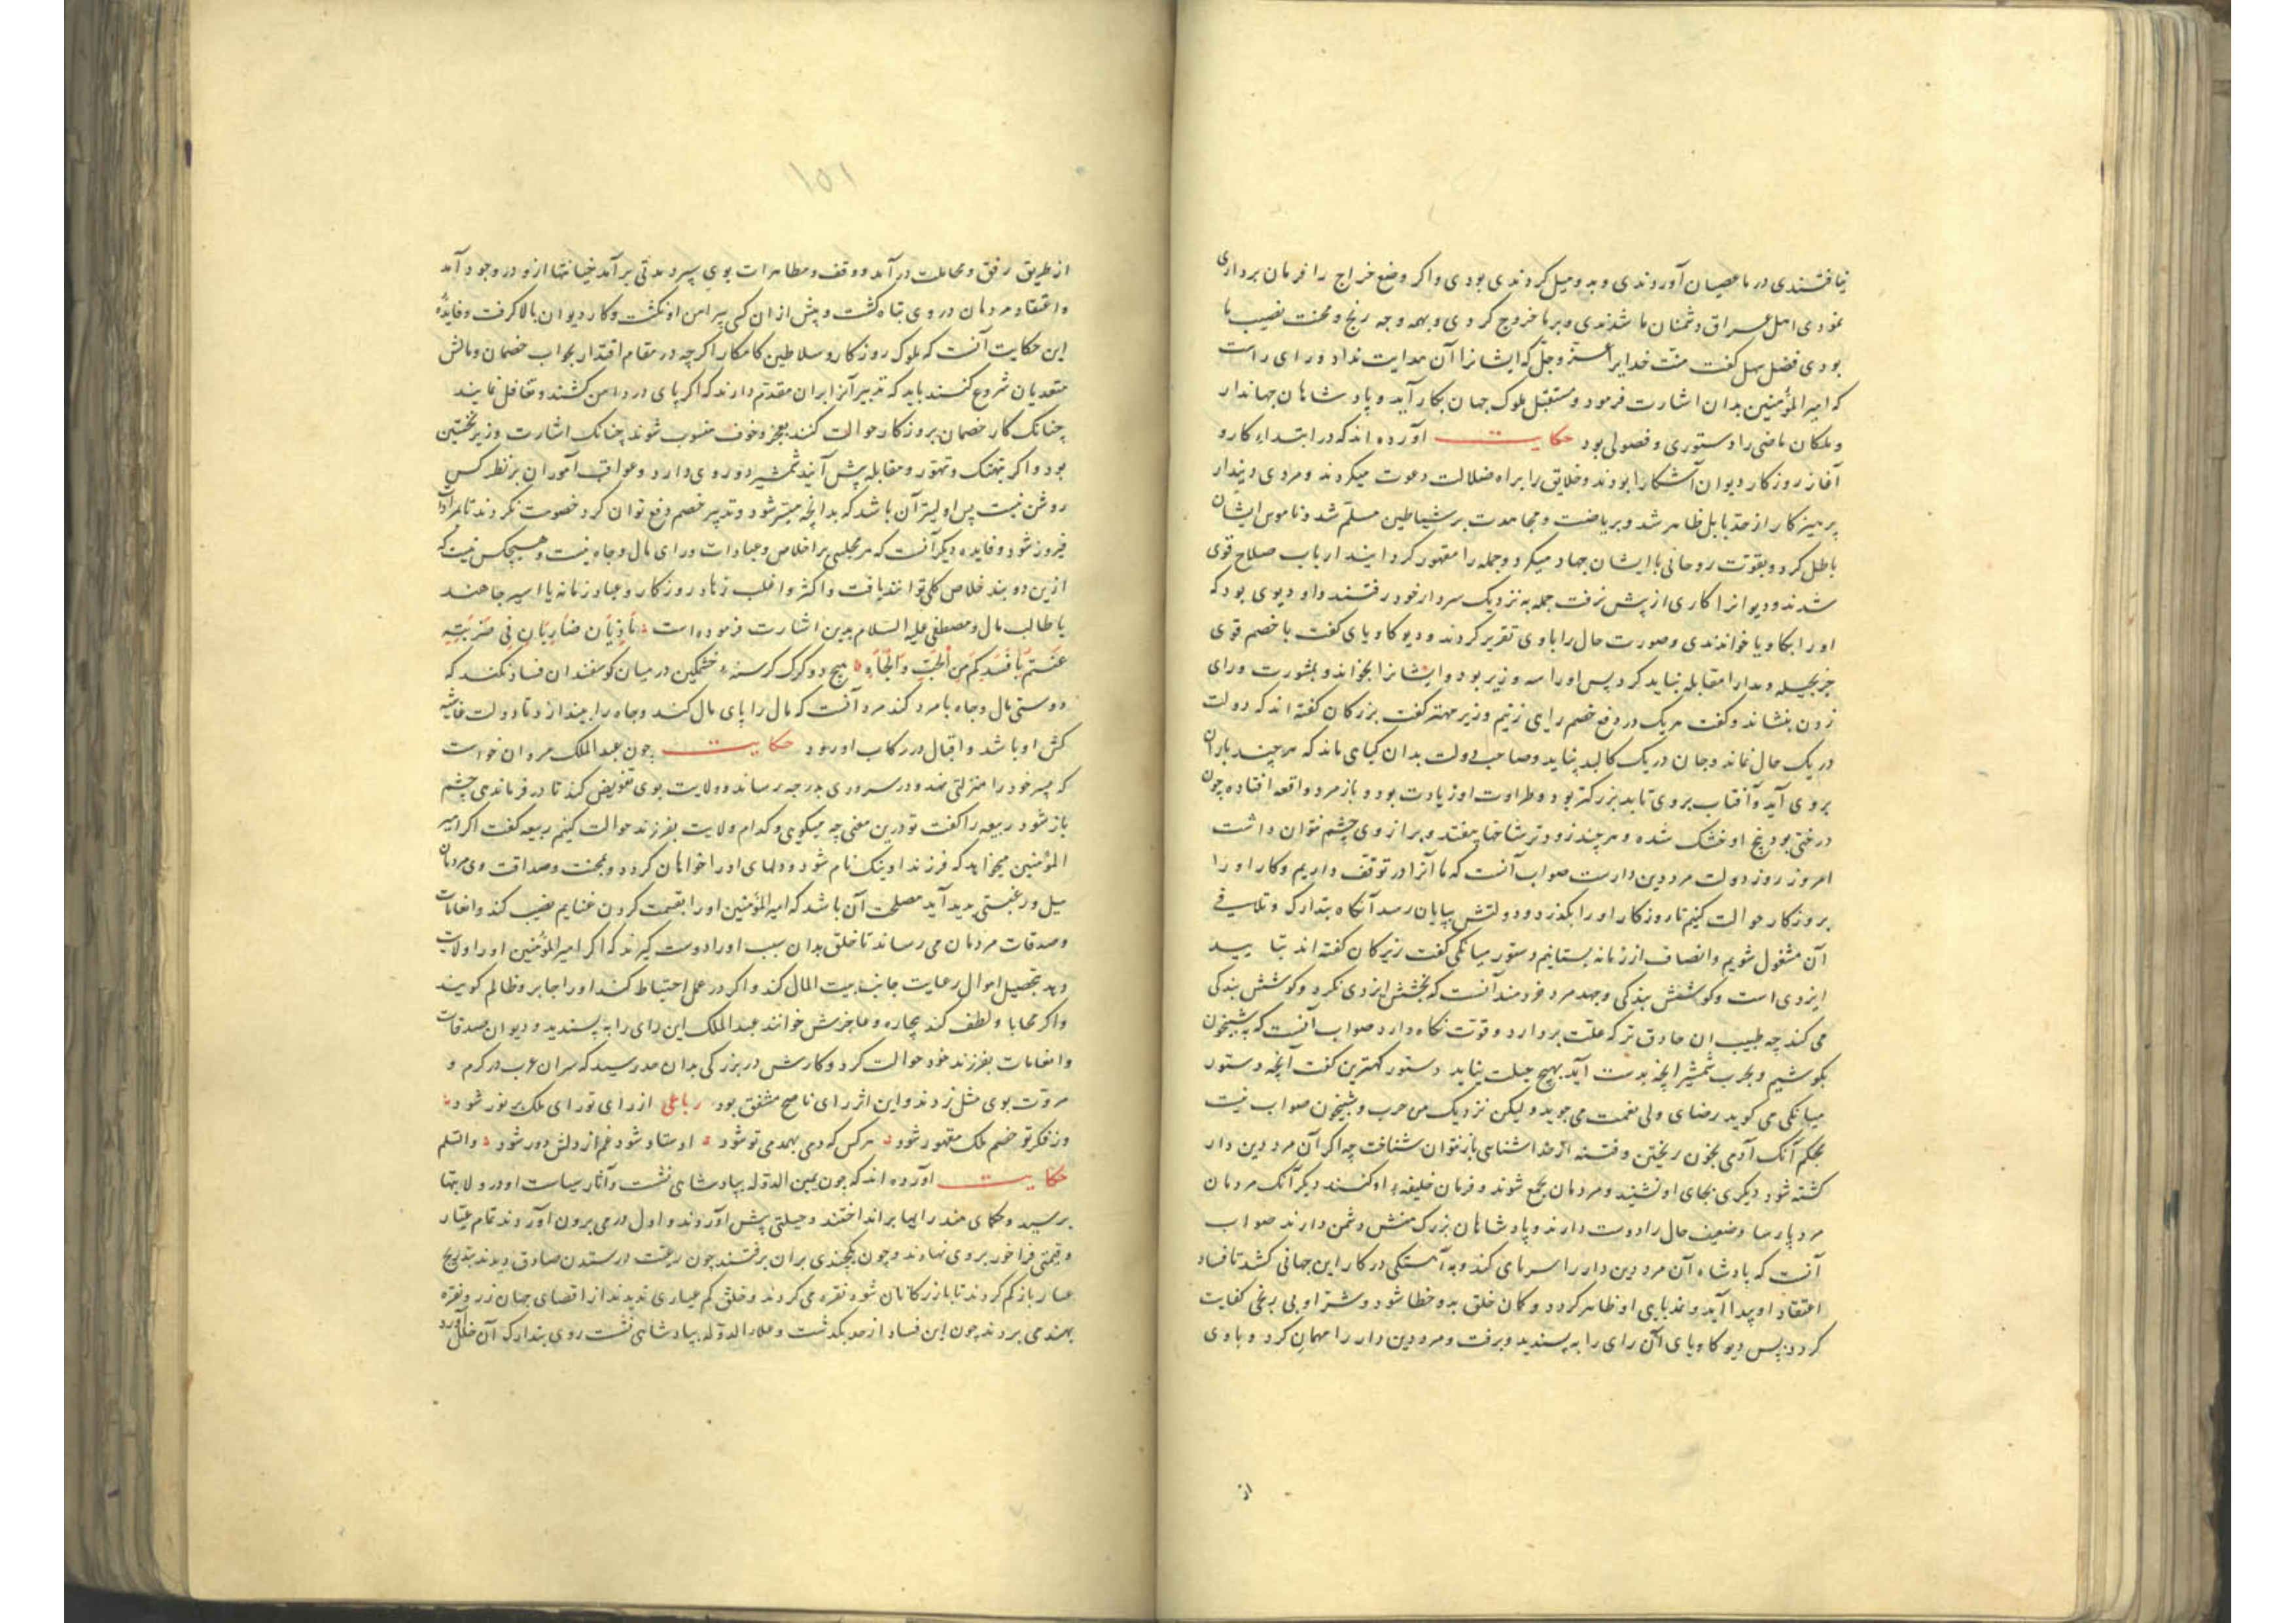 نیافتندی در ما عصیان آوردندی و بد و میل کردندی بودی و اگر وضع خراج را فرمان برداری
نمودی اهل عراق دشمنان ما شدندی و بر ما خروج کردی و بهمه وجه رنج و محنت نصیب ما
بودی فضل سهل گفت منت خدایرا عز و جل که ایشانرا آن هدایت نداد و رای راست
که امیر المؤمنین بدان اشارت فرمود و مستقبل ملوک جهان بکار آید و پادشاهان جهاندار
و ملکان ماضی را دستوری و فصولی بود حکایت آورده اند که در ابتداء کار و
آغاز روزکار دیوان آشکارا بودند و خلایق را براه ضلالت دعوت میکردند و مردی دیندار
پرهیزکار از حد بابل ظاهر شد و بریاضت و مجاهدت بر شیاطین مسلم شد و ناموس ایشان
باطل کرد و بقوت روحانی با ایشان جهاد میکرد و جمله را مقهور گردانید ارباب صلاح قوی
شدند و دیوانرا کاری از پیش نرفت جمله به نزدیک سردار خود رفتند و او دیوی بود که
او را کاویا خواندندی و صورت حال را با وی تقریر کردند و دیو کاویای گفت با خصم قوی
جز بحیله و مدارا مقابله نباید کرد پس او را سه وزیر بود و ایشانرا بخواند و بمشورت و رای
زدن بنشاند و گفت هر یک در دفع خصم رای زنیم وزیر مهتر گفت بزرکان گفته اند که دولت
در یک حال نماند و جان در یک کالبد نپاید و صاحب دولت بدان گیاه ماند که هر چند باران
بر وی آید و آفتاب بر وی تابد بزرگتر بود و طراوت او زیادت بود و باز مرد واقعه افتاده چون
درختی بود بیخ او خشک شده و هر چند زودتر شاخها بیفتد و بر از وی چشم نتوان داشت
امروز روز دولت مرد دین دارست صواب آنست که ما آنرا در توقف داریم و کار او را
بروزکار حوالت کنیم تا روزکار او را بگذرد و دولتش بپایان رسد آنکاه بتدارک و تلافی
آن مشغول شویم و انصاف از زمانه بستانیم دستور میانگی گفت زیرکان گفته اند تتایید
ایزدی است و کوشش بندکی و جهد مرد خردمند آنست که بخشش ایزدی نکرد و کوشش بندکی
می کند چه طبیب آن حاذق تر که علت بردارد و قوت نکاه دارد صواب آنست که به شبیخون
بکوشیم و بحرب شمشیر آنچه بدست آید بهیچ حیلت نیاید دستور کهترین گفت آنچه دستور
میانگی می گوید رضای ولی نعمت می جوید و لیکن نزدیک من حرب و شبیخون صواب نیست
بحکم آنک آدمی بخون ریختن و فتنه از خدا شناسی باز نتوان شناخت چه اگر آن مرد دین دار
کشته شود دیگری بجای او نشیند و مردمان جمع شوند و فرمان خلیفهء او کنند دیگر آنک مردمان
مرد پارسا و ضعیف حال را دوست دارند و پادشاهان بزرگ منش دشمن دارند صواب
آنست که پادشاه آن مرد دین دار را اسر مای کند و به آهستگی در کار این جهانی کشد تا فساد
اعتقاد او پیدا آید و اندیابی او ظاهر گردد و گمان خلق بد و خطا شود و شر او بی رنجی کفایت
گردد پس دیو کاویای آن رای را به پسندید و برفت و مرد دین دار را مهمان کرد و با وی
از
۱۵۱
از طریق رفق و مجاملت در آمد و وقف و مظاهرات بوی سپرد مدتی بر آمد خیانتها ازو در وجود آمد
و اعتقاد مردمان در وی تباه گشت و پیش از ان کسی پیرامن او نگشت و کار دیوان بالا گرفت و فایدهٔ
این حکایت آنست که ملوک روزکار و سلاطین کامکار اگر چه در مقام اقتدار بجواب خصمان و مالش
متعدیان شروع کنند باید که تدبیر آنرا بران مقدم دارند که اگر پای در دامن کشند و تغافل نمایند
چنانک کار خصمان بروزکار حوالت کنند بعجز و خوف منسوب شوند چنانک اشارت وزیر نخستین
بود و اگر بتهتک و تهور و مقابله پیش آیند شمشیر دو روی دارد و عواقب امور ان بر نظر کس
روشن نیست پس اولیتر آن باشد که بدانچه میسر شود و تدبیر خصم دفع توان کرد خصومت نکردند تا بمرادات
فیروز شود و فایده دیگر آنست که هر مجلسی بر اخلاص و عبادات ورای مال و جاه نیست و هیچکس نیست که
ازین دو بند خلاص کلی تواند یافت و اکثر و اغلب زهاد روزکار و عباد زمانه یا اسیر جاهند
یا طالب مال و مصطفی علیه السلام بدین اشارت فرموده است ماذیان ضاریان فی ضریبة
غنم بافسدکم من الحب و الجاه هیچ دو گرک گرسنهء خشمگین در میان کوسفندان فساد نکنند که
دوستی مال و جاه با مرد کند مرد آنست که مال را پای مال کند و جاه را بیندازد تا دولت غاشیه
کش او باشد و اقبال در رکاب او رود حکایت چون عبد الملک مروان خواست
که پسر خود را منزلتی نهد و در سروری بدرجه رساند و ولایت بوی تفویض کند تا در فرماندهی چشم
باز شود ربیعه را گفت تو درین معنی چه میگوی و کدام ولایت بفرزند حوالت کنیم ربیعه گفت اگر امیر
المؤمنین میخواهد که فرزند او نیک نام شود و دلهای او را خواهان گردد و بمحبت و صداقت وی مردمان
میل و رغبتی پدید آید مصلحت آن باشد که امیر المؤمنین او را بقسمت کردن غنایم نصیب کند و انعامات
و صدقات مردمان می رساند تا خلق بدان سبب او را دوست گیرند که اگر امیر المؤمنین او را ولایت
دهد بتحصیل اموال رعایت جانب بیت المال کند و اگر در عمل احتیاط کند او را جابر و ظالم گویند
و اگر محابا و لطف کند بیچاره و عاجزش خوانند عبد الملک این رای را به پسندید و دیوان صدقات
و انعامات بفرزند خود حوالت کرد و کارش در بزرگی بدان حد رسید که سران عرب در کرم و
مروت بوی مثل زدند و این اثر رای ناصح مشفق بود رباعی از رای تو رای ملک پر نور شود
وز فکر تو خصم ملک مقهور شود هر کس که دمی بهمدمی تو شود استاد شود غم از دلش دور شود و السلم
حکایت آورده اند که چون یمین الدوله بپادشاهی نشست و آثار سیاست او در ولایتها
برسید و حکمای هند رایها بر انداختند و حیلتی پیش آوردند و اول درمی برون آوردند تمام عیار
و قیمتی فراخور بر وی نهادند و چون یکچندی بران برفتند چون رعیت در ستدن صادق دیدند بتدریج
عیار باز کم کردند تا بازرگانان شوه نقره می کردند و خلق کم عیاری ندیدند از اقصای جهان زر و نقره
بهند می بردند چون این فساد از حد بگذشت و علاء الدوله بپادشاهی نشست روی بتدارک آن خلل آورد